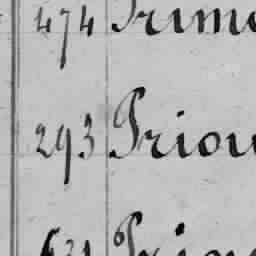 474 Prime
293 Priou
631 Prio